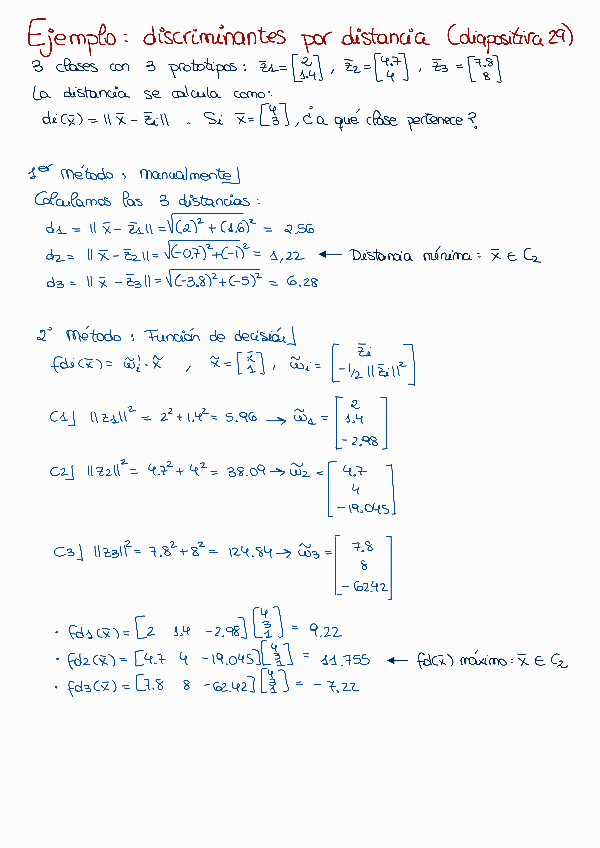 Ejemplo: discriminantes por distancia (diapositiva 29)
3 clases con 3 prototipos: z̄1=[2 1.4], z̄2=[4.7 4], z̄3=[7.8 8]
La distancia se calcula como:
di(x̄)=||x̄-z̄i||. Si x̄=[4 3], ¿a qué clase pertenece?
1er método: manualmente
Calculamos las 3 distancias:
d1 = ||x̄-z̄1||=√(2)²+(1.6)² = 2.56
d2= ||x̄-z̄2||=√(-0.7)²+(-1)² = 1,22 ← Distancia mínima: x̄ ∈ C2
d3= ||x̄-z̄3||=√(-3.8)²+(-5)² = 6.28
2º Método: Función de decisión
fdi(x̄) = w̃i'·x̃, x̃=[x̄ 1], w̃i=[z̄i -1/2||z̄i||²]
C1] ||z1||² = 2²+1.4² = 5.96 → w̃1 = [2 1.4 -2.98]
C2] ||z2||² = 4.7²+4² = 38.09 → w̃2 = [4.7 4 -19.045]
C3] ||z3||² = 7.8²+8² = 124.84 → w̃3 = [7.8 8 -62.42]
· fd1(x̄)=[2 1.4 -2.98][4 3 1] = 9.22
· fd2(x̄)=[4.7 4 -19.045][4 3 1] = 11.755 ← fd(x̄) máximo: x̄ ∈ C2
· fd3(x̄)=[7.8 8 -62.42][4 3 1] = -7,22